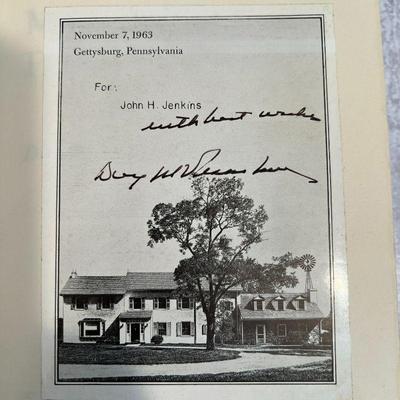 November 7, 1963
Gettysburg, Pennsylvania
For:
John H. Jenkins
with best wishes
Dwight D Eisenhower